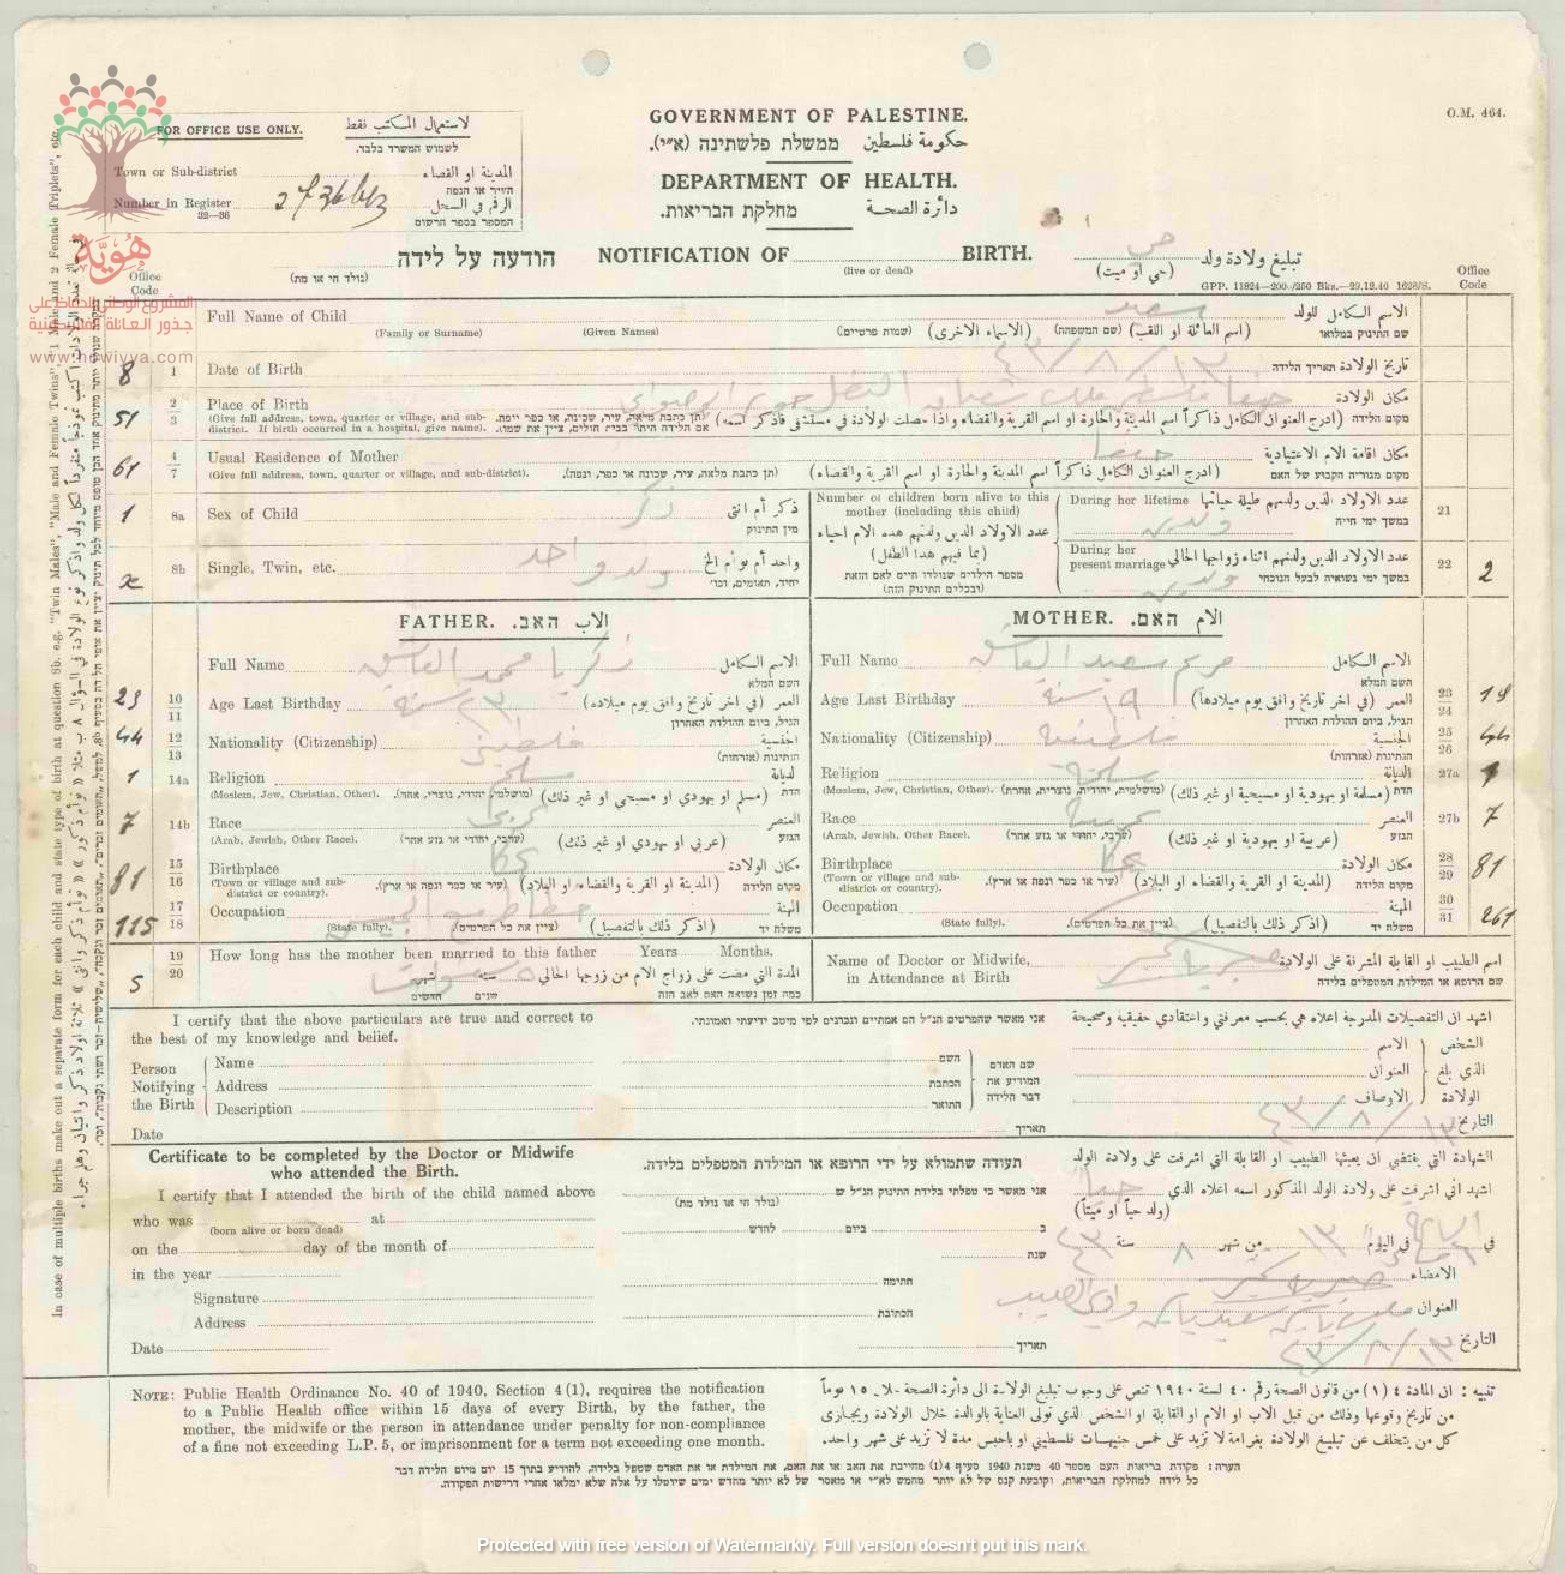 O.M. 464.
GOVERNMENT OF PALESTINE.
حكومة فلسطين ממשלת פלשתינה (א״י).
DEPARTMENT OF HEALTH.
دائرة الصحة מחלקת הבריאות.
FOR OFFICE USE ONLY. لاستعمال المكتب فقط
לשמוש המשרד בלבד.
Town or Sub-district المدينة او القضاء
העיר או הנפה
Number In Register الرقم في السجل
32—36 המספר בספר הרשום
הודעה על לידה NOTIFICATION OF BIRTH. تبليغ ولادة ولد حي
(נולד חי או מת) (live or dead) (حي او ميت)
GPP. 11824—200/250 Bks.—29.12.40 1628/S.
Office Code Office Code
Full Name of Child الاسم الكامل للولد سعيد
(Family or Surname) (Given Names) (שמות פרטיים) (الاسماء الاخرى) (שם המשפחה) (اسم العائلة او اللقب) שם התינוק במלואו
8 1 Date of Birth ١٣/٨/٤٣ تاريخ الولادة תאריך הלידה
51 2 3 Place of Birth مكان الولادة
(Give full address, town, quarter or village, and sub-district. If birth occurred in a hospital, give name). (תן כתבת מלאה, עיר, שכונה, או כפר ונפה. אם הלידה היתה בבית חולים, ציין את שמו). (ادرج العنوان الكامل ذاكراً اسم المدينة والحارة او اسم القرية والقضاء واذا حصلت الولادة في مستشفى فاذكر اسمه) מקום הלידה
61 4 7 Usual Residence of Mother حيفا مكان اقامة الام الاعتيادية
(Give full address, town, quarter or village, and sub-district). (תן כתבת מלאה, עיר, שכונה או כפר, ונפה). (ادرج العنوان الكامل ذاكراً اسم المدينة والحارة او اسم القرية والقضاء) מקום מגוריה הקבוע של האם
1 8a Sex of Child ذكر ذكر أم انثى
מין התינוק
8b Single, Twin, etc. ولد واحد واحد أم توأم الخ
יחיד, תאומים, וכו׳
Number of children born alive to this mother (including this child)
عدد الاولاد الذين ولدتهم هذه الام احياء
(بما فيهم هذا الطفل)
מספר הילדים שנולדו חיים לאם הזאת
(ובכללים התינוק הזה)
During her lifetime عدد الاولاد الذين ولدتهم طيلة حياتها 21
במשך ימי חייה
ولدين
During her present marriage عدد الاولاد الذين ولدتهم اثناء زواجها الحالي 22 2
במשך ימי נשואיה לבעל הנוכחי
ولدين
FATHER. الاب האב.
Full Name زكريا محمد الاسم الكامل
השם המלא
23 10 11 Age Last Birthday ٢٣ سنة العمر (في اخر تاريخ وافق يوم ميلاده)
הגיל, ביום ההולדת האחרון
44 12 13 Nationality (Citizenship) فلسطيني الجنسية
הנתינות (אזרחות)
1 14a Religion مسلم الديانة
(Moslem, Jew, Christian, Other). (מושלמי, יהודי, נוצרי, אחר). (مسلم او يهودي او مسيحي او غير ذلك) הדת
7 14b Race عربي العنصر
(Arab, Jewish, Other Race). (ערבי, יהודי או גזע אחר) (عربي او يهودي او غير ذلك) הגזע
81 15 16 Birthplace عكا مكان الولادة
(Town or village and sub-district or country). (עיר או כפר ונפה או ארץ). (المدينة او القرية والقضاء او البلاد) מקום הלידה
115 17 18 Occupation المهنة
(State fully). (ציין את כל הפרטים). (اذكر ذلك بالتفصيل) משלח יד
5 19 20 How long has the mother been married to this father Years Months.
المدة التي مضت على زواج الام من زوجها الحالي سنة شهر
כמה זמן נשואה האם לאב הזה שנים חדשים
MOTHER. الام האם.
Full Name مريم سعيد الاسم الكامل
השם המלא
Age Last Birthday ١٩ سنة العمر (في اخر تاريخ وافق يوم ميلادها) 23 24 19
הגיל, ביום ההולדת האחרון
Nationality (Citizenship) فلسطينية الجنسية 25 26 44
הנתינות (אזרחות)
Religion مسلمة الديانة 27a 1
(Moslem, Jew, Christian, Other). (מושלמית, יהודיה, נוצריה, אחרת). (مسلمة او يهودية او مسيحية او غير ذلك) הדת
Race عربية العنصر 27b 7
(Arab, Jewish, Other Race). (ערבי, יהודי או גזע אחר) (عربية او يهودية او غير ذلك) הגזע
Birthplace عكا مكان الولادة 28 29 81
(Town or village and sub-district or country). (עיר או כפר ונפה או ארץ). (المدينة او القرية والقضاء او البلاد) מקום הלידה
Occupation المهنة 30 31 261
(State fully). (ציין את כל הפרטים). (اذكر ذلك بالتفصيل) משלח יד
Name of Doctor or Midwife, اسم الطبيب او القابلة المشرفة على الولادة
in Attendance at Birth שם הרופא או המילדת המטפלים בלידה
I certify that the above particulars are true and correct to the best of my knowledge and belief.
אני מאשר שהפרטים הנ״ל הם אמתיים ונכונים לפי מיטב ידיעתי ואמונתי.
اشهد ان التفصيلات المدرجة اعلاه هي بحسب معرفتي واعتقادي حقيقية وصحيحة
Person Notifying the Birth Name Address Description
השם הכתבת התואר שם האדם המודיע את דבר הלידה
الاسم العنوان الاوصاف الشخص الذي بلغ الولادة
Date תאריך التاريخ ١٣/٨/٤٣
Certificate to be completed by the Doctor or Midwife who attended the Birth.
תעודה שתמולא על ידי הרופא או המילדת המטפלים בלידה.
الشهادة التي يقتضي ان يعبئها الطبيب او القابلة التي اشرفت على ولادة الولد
I certify that I attended the birth of the child named above
who was at
(born alive or born dead)
on the day of the month of
in the year
Signature
Address
Date
אני מאשר כי טפלתי בלידת התינוק הנ״ל ש
(נולד חי או נולד מת)
ב ביום לחדש
שנת
חתימה
הכתובת
תאריך
اشهد اني اشرفت على ولادة الولد المذكور اسمه اعلاه الذي حياً
(ولد حياً او ميتاً)
في في اليوم ١٣ من شهر ٨ سنة ٤٣
الامضاء
العنوان
التاريخ ١٣/٨/٤٣
NOTE: Public Health Ordinance No. 40 of 1940, Section 4(1), requires the notification
to a Public Health office within 15 days of every Birth, by the father, the
mother, the midwife or the person in attendance under penalty for non-compliance
of a fine not exceeding L.P.5, or imprisonment for a term not exceeding one month.
تنبيه : ان المادة ٤ (١) من قانون الصحة رقم ٤٠ لسنة ١٩٤٠ تنص على وجوب تبليغ الولادة الى دائرة الصحة خلال ١٥ يوماً
من تاريخ وقوعها وذلك من قبل الاب او الام او القابلة او الشخص الذي تولى العناية بالوالدة خلال الولادة ويجازى
كل من يتخلف عن تبليغ الولادة بغرامة لا تزيد على خمس جنيهات فلسطيني او بالحبس مدة لا تزيد على شهر واحد.
הערה: פקודת בריאות העם מספר 40 משנת 1940 סעיף 4(1) מחייבת את האב או את האם, את המילדת או את האדם שטפל בלידה, להודיע בתוך 15 יום מיום הלידה דבר
כל לידה למחלקת הבריאות, וקובעת קנס של לא יותר מחמש לא״י או מאסר של לא יותר מחדש ימים שיוטלו על אלה שלא ימלאו אחרי דרישות הפקודה.
In case of multiple births make out a separate form for each child and state type of birth at question 8b. e.g. "Twin Males", "Male and Female Twins", "1 Male and 2 Female Triplets", etc.
هُوِيَّة
المشروع الوطني للحفاظ على
جذور العائلة الفلسطينية
www.howiyya.com
Protected with free version of Watermarkly. Full version doesn't put this mark.